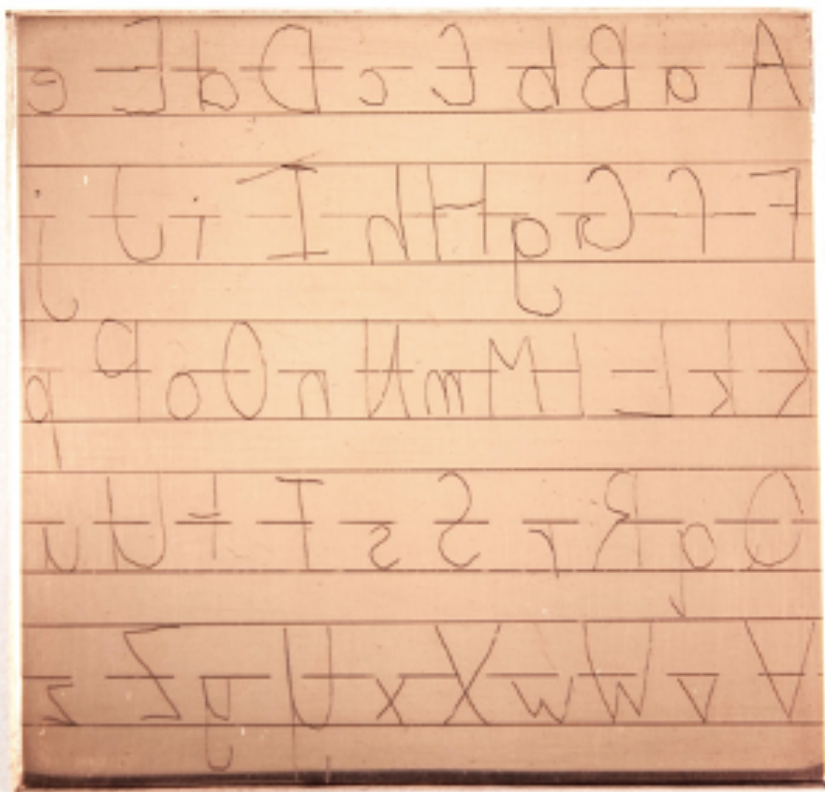 A a B b C c D d E e
F f G g H h I i J j
K k L l M m N n O o P p
Q q R r S s T t U u
V v W w X x Y y Z z